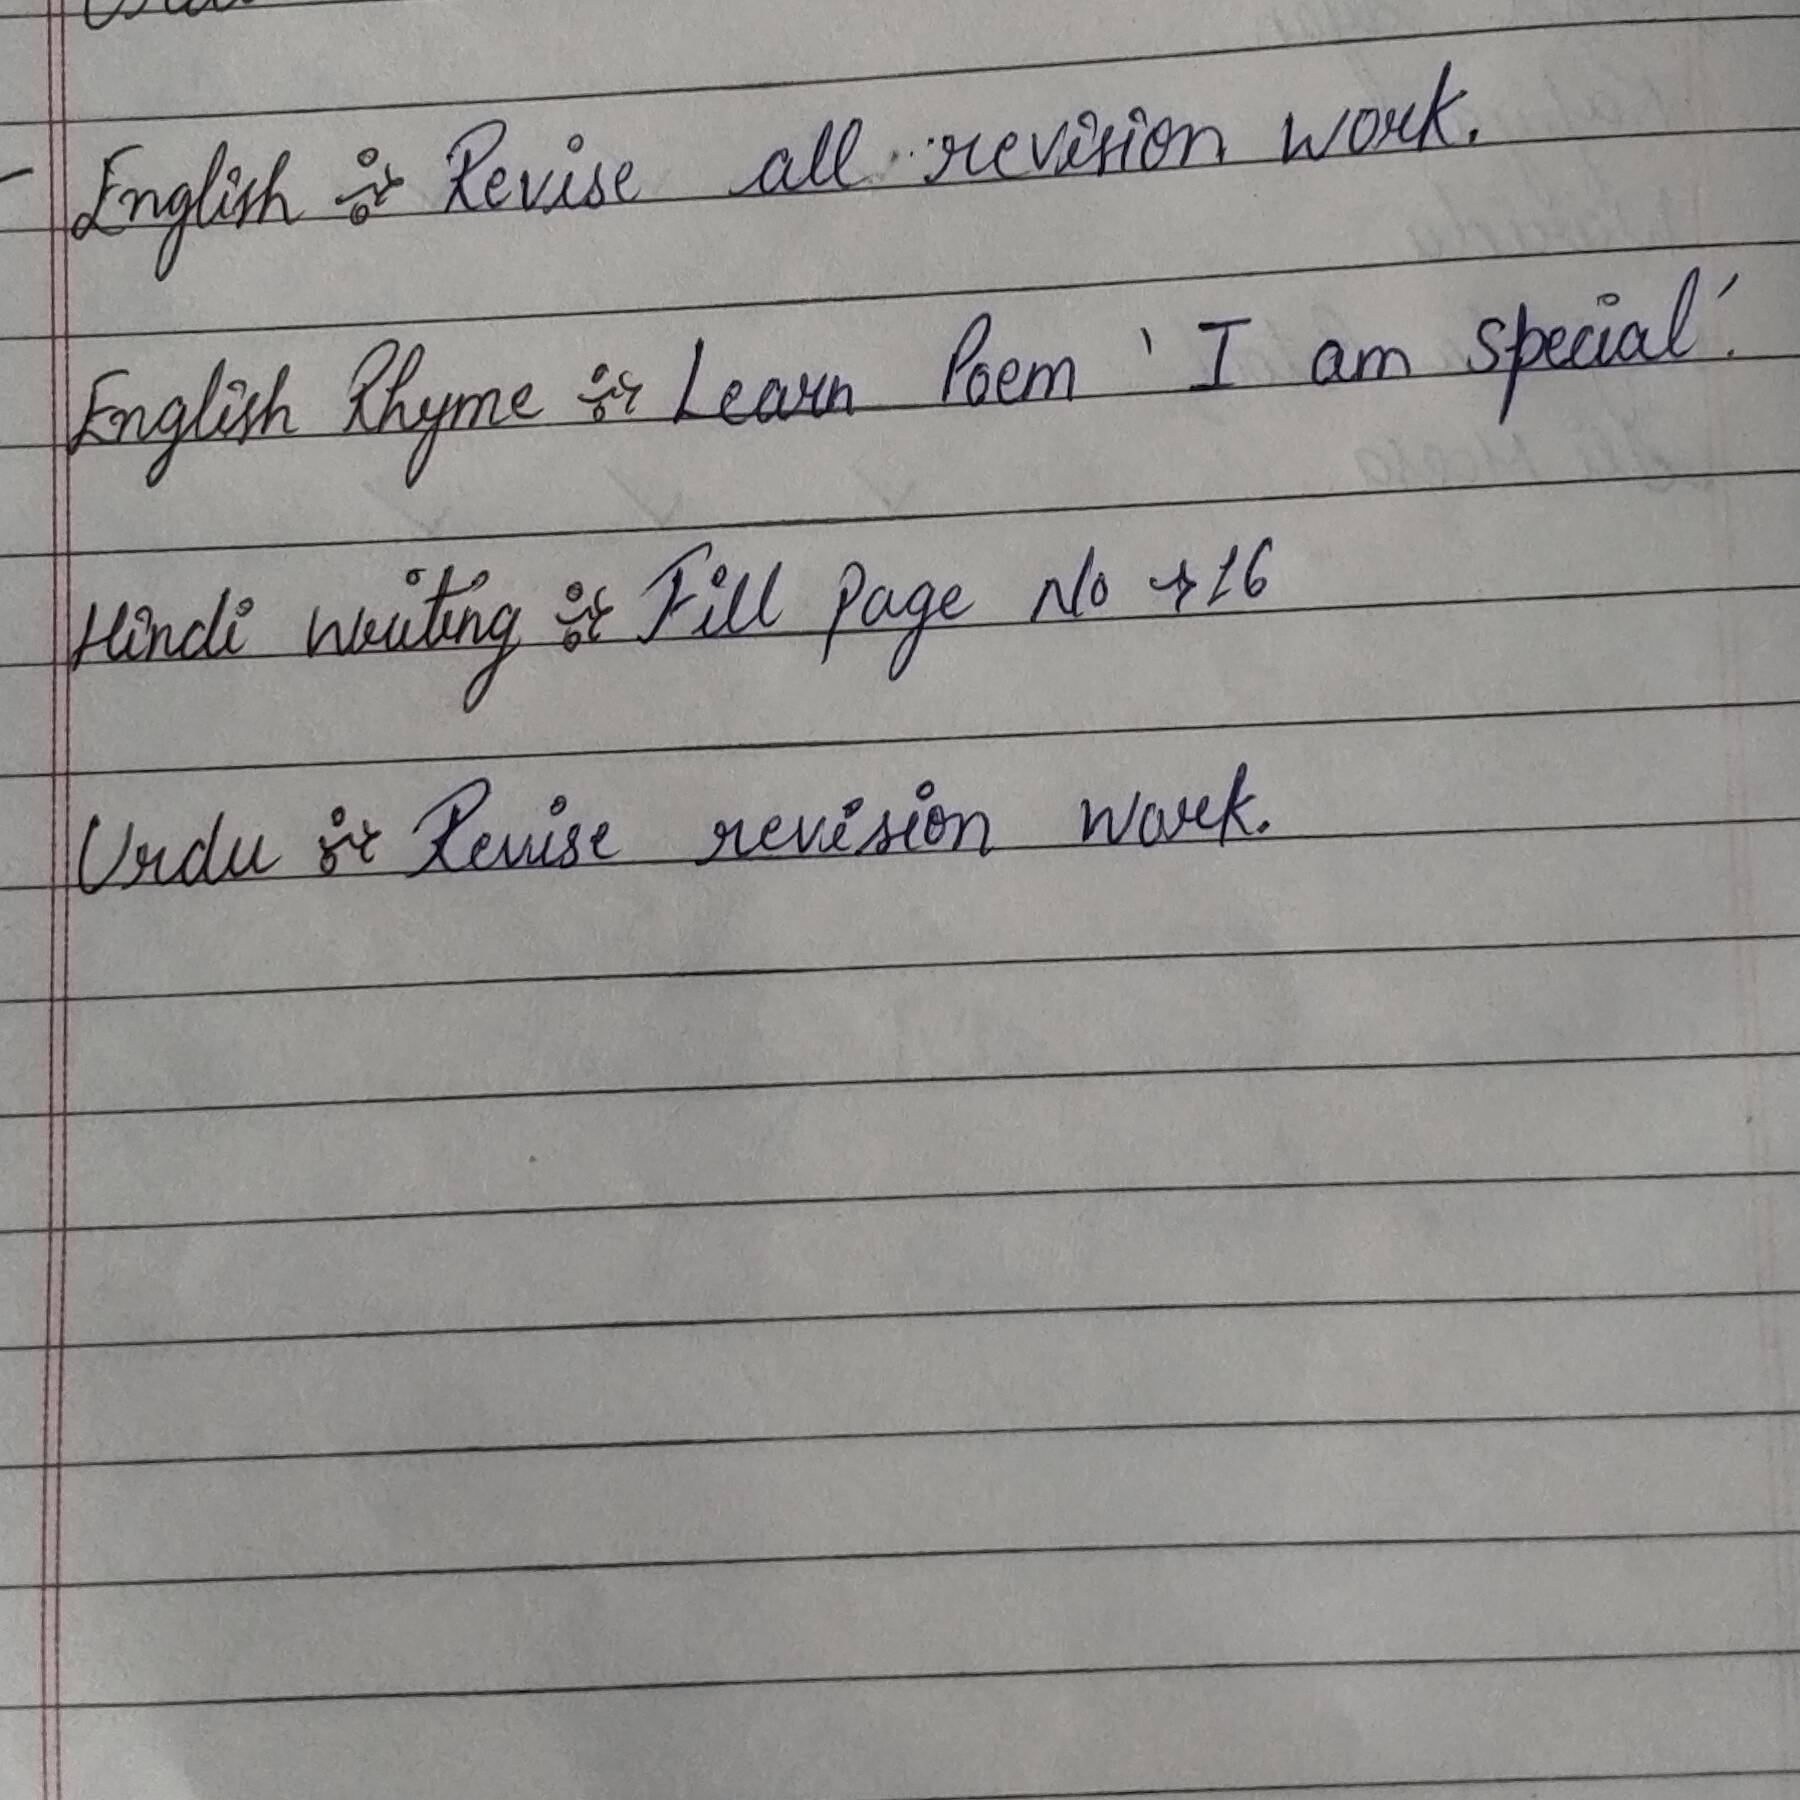 English :- Revise all revision work.
English Rhyme :- Learn Poem 'I am special'.
Hindi writing :- Fill Page No → 16
Urdu :- Revise revision work.